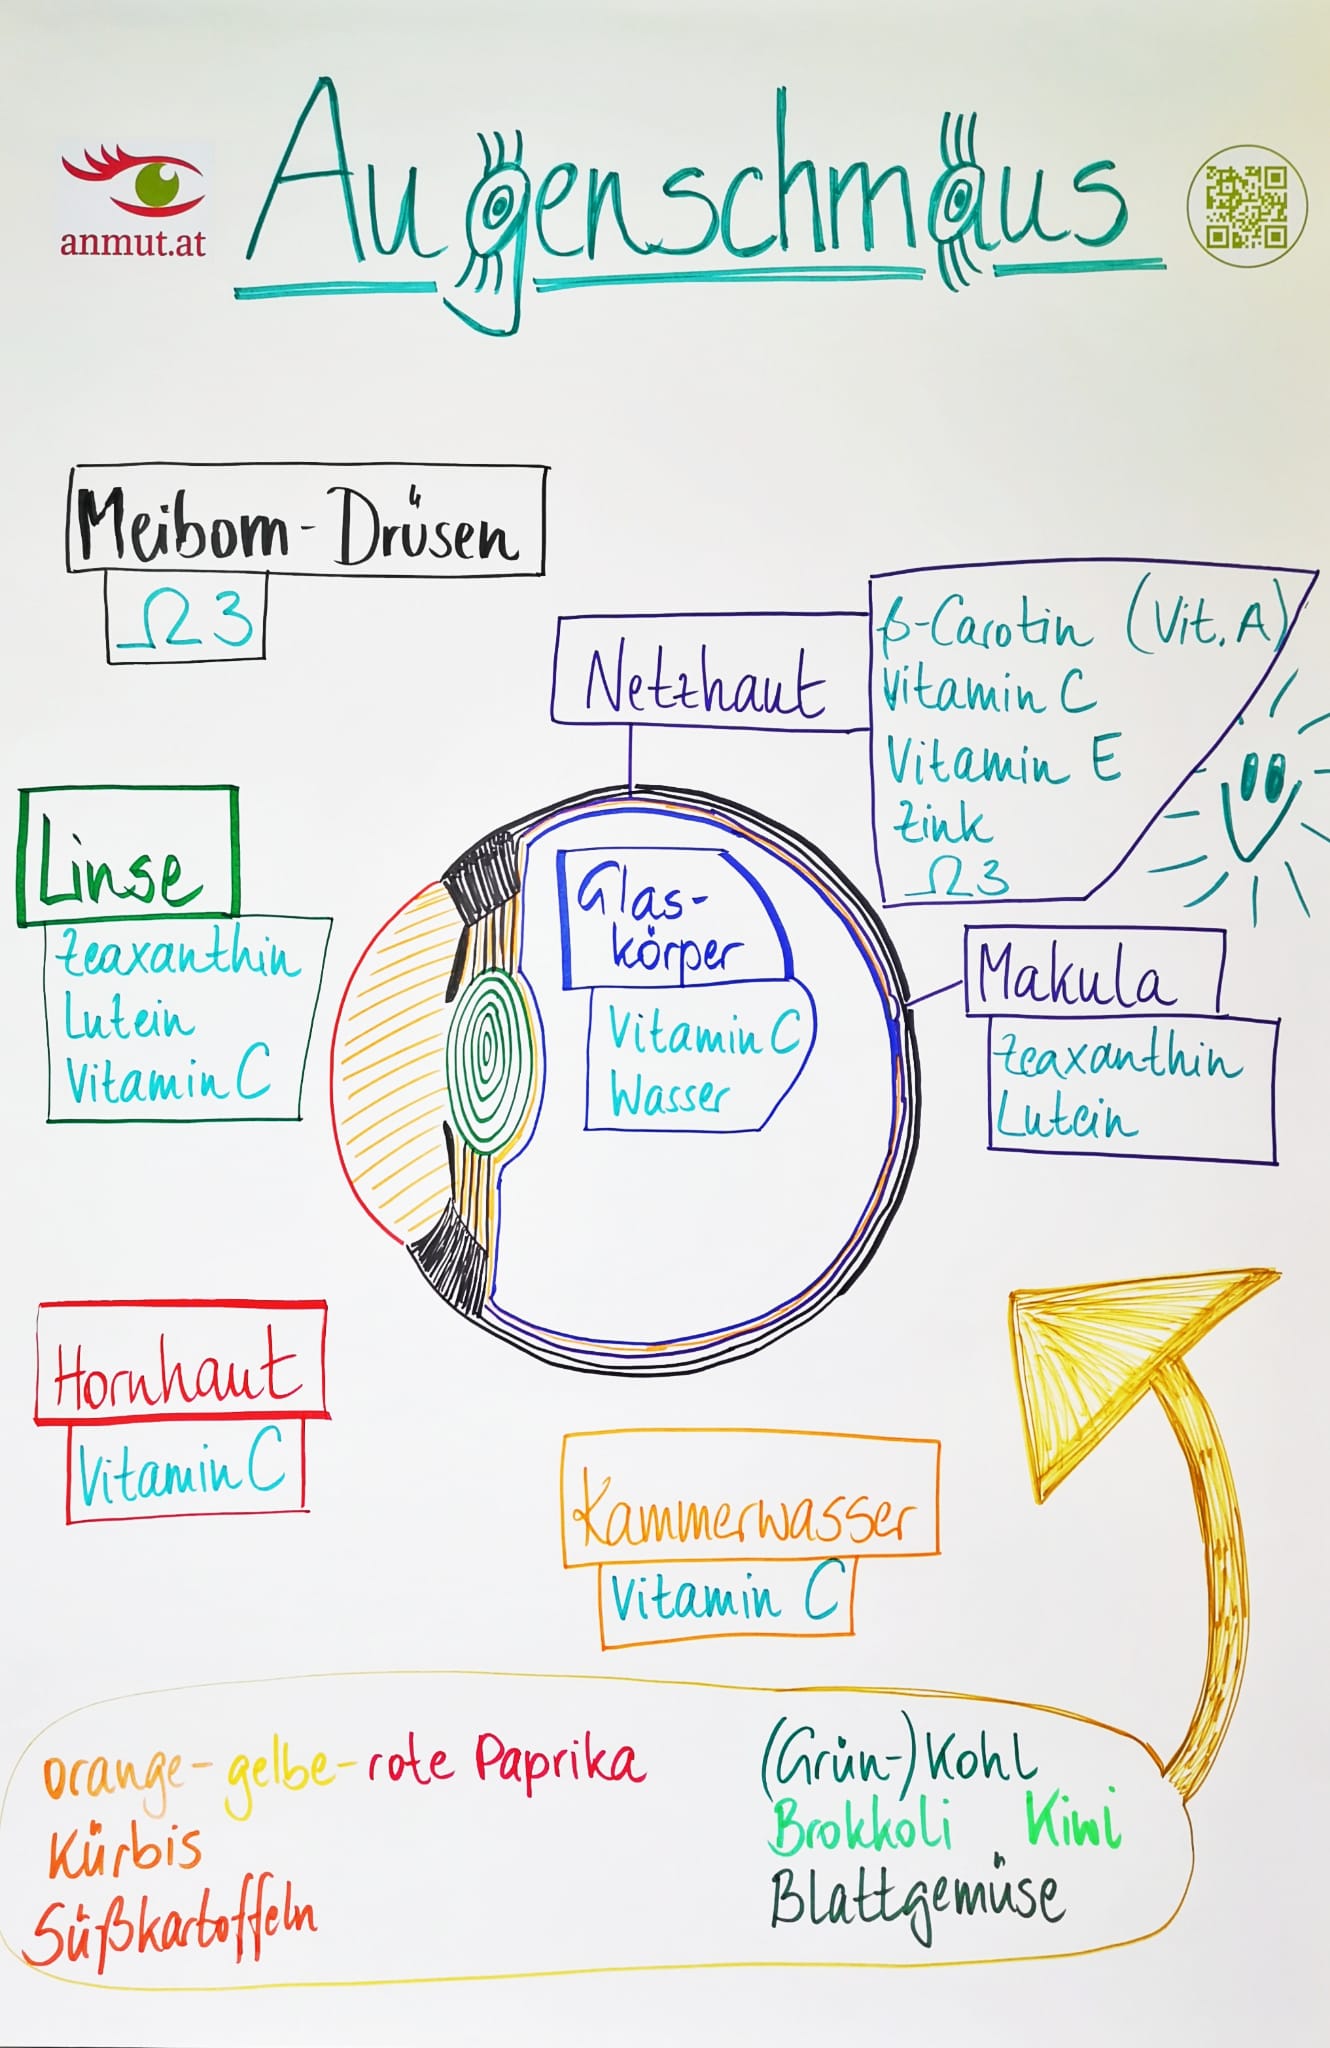 anmut.at
Augenschmaus
Meibom-Drüsen
Ω3
Netzhaut
β-Carotin (Vit. A)
Vitamin C
Vitamin E
Zink
Ω3
Linse
Zeaxanthin
Lutein
Vitamin C
Glas-
körper
Vitamin C
Wasser
Makula
Zeaxanthin
Lutein
Hornhaut
Vitamin C
Kammerwasser
Vitamin C
orange-gelbe-rote Paprika
Kürbis
Süßkartoffeln
(Grün-)Kohl
Brokkoli Kiwi
Blattgemüse